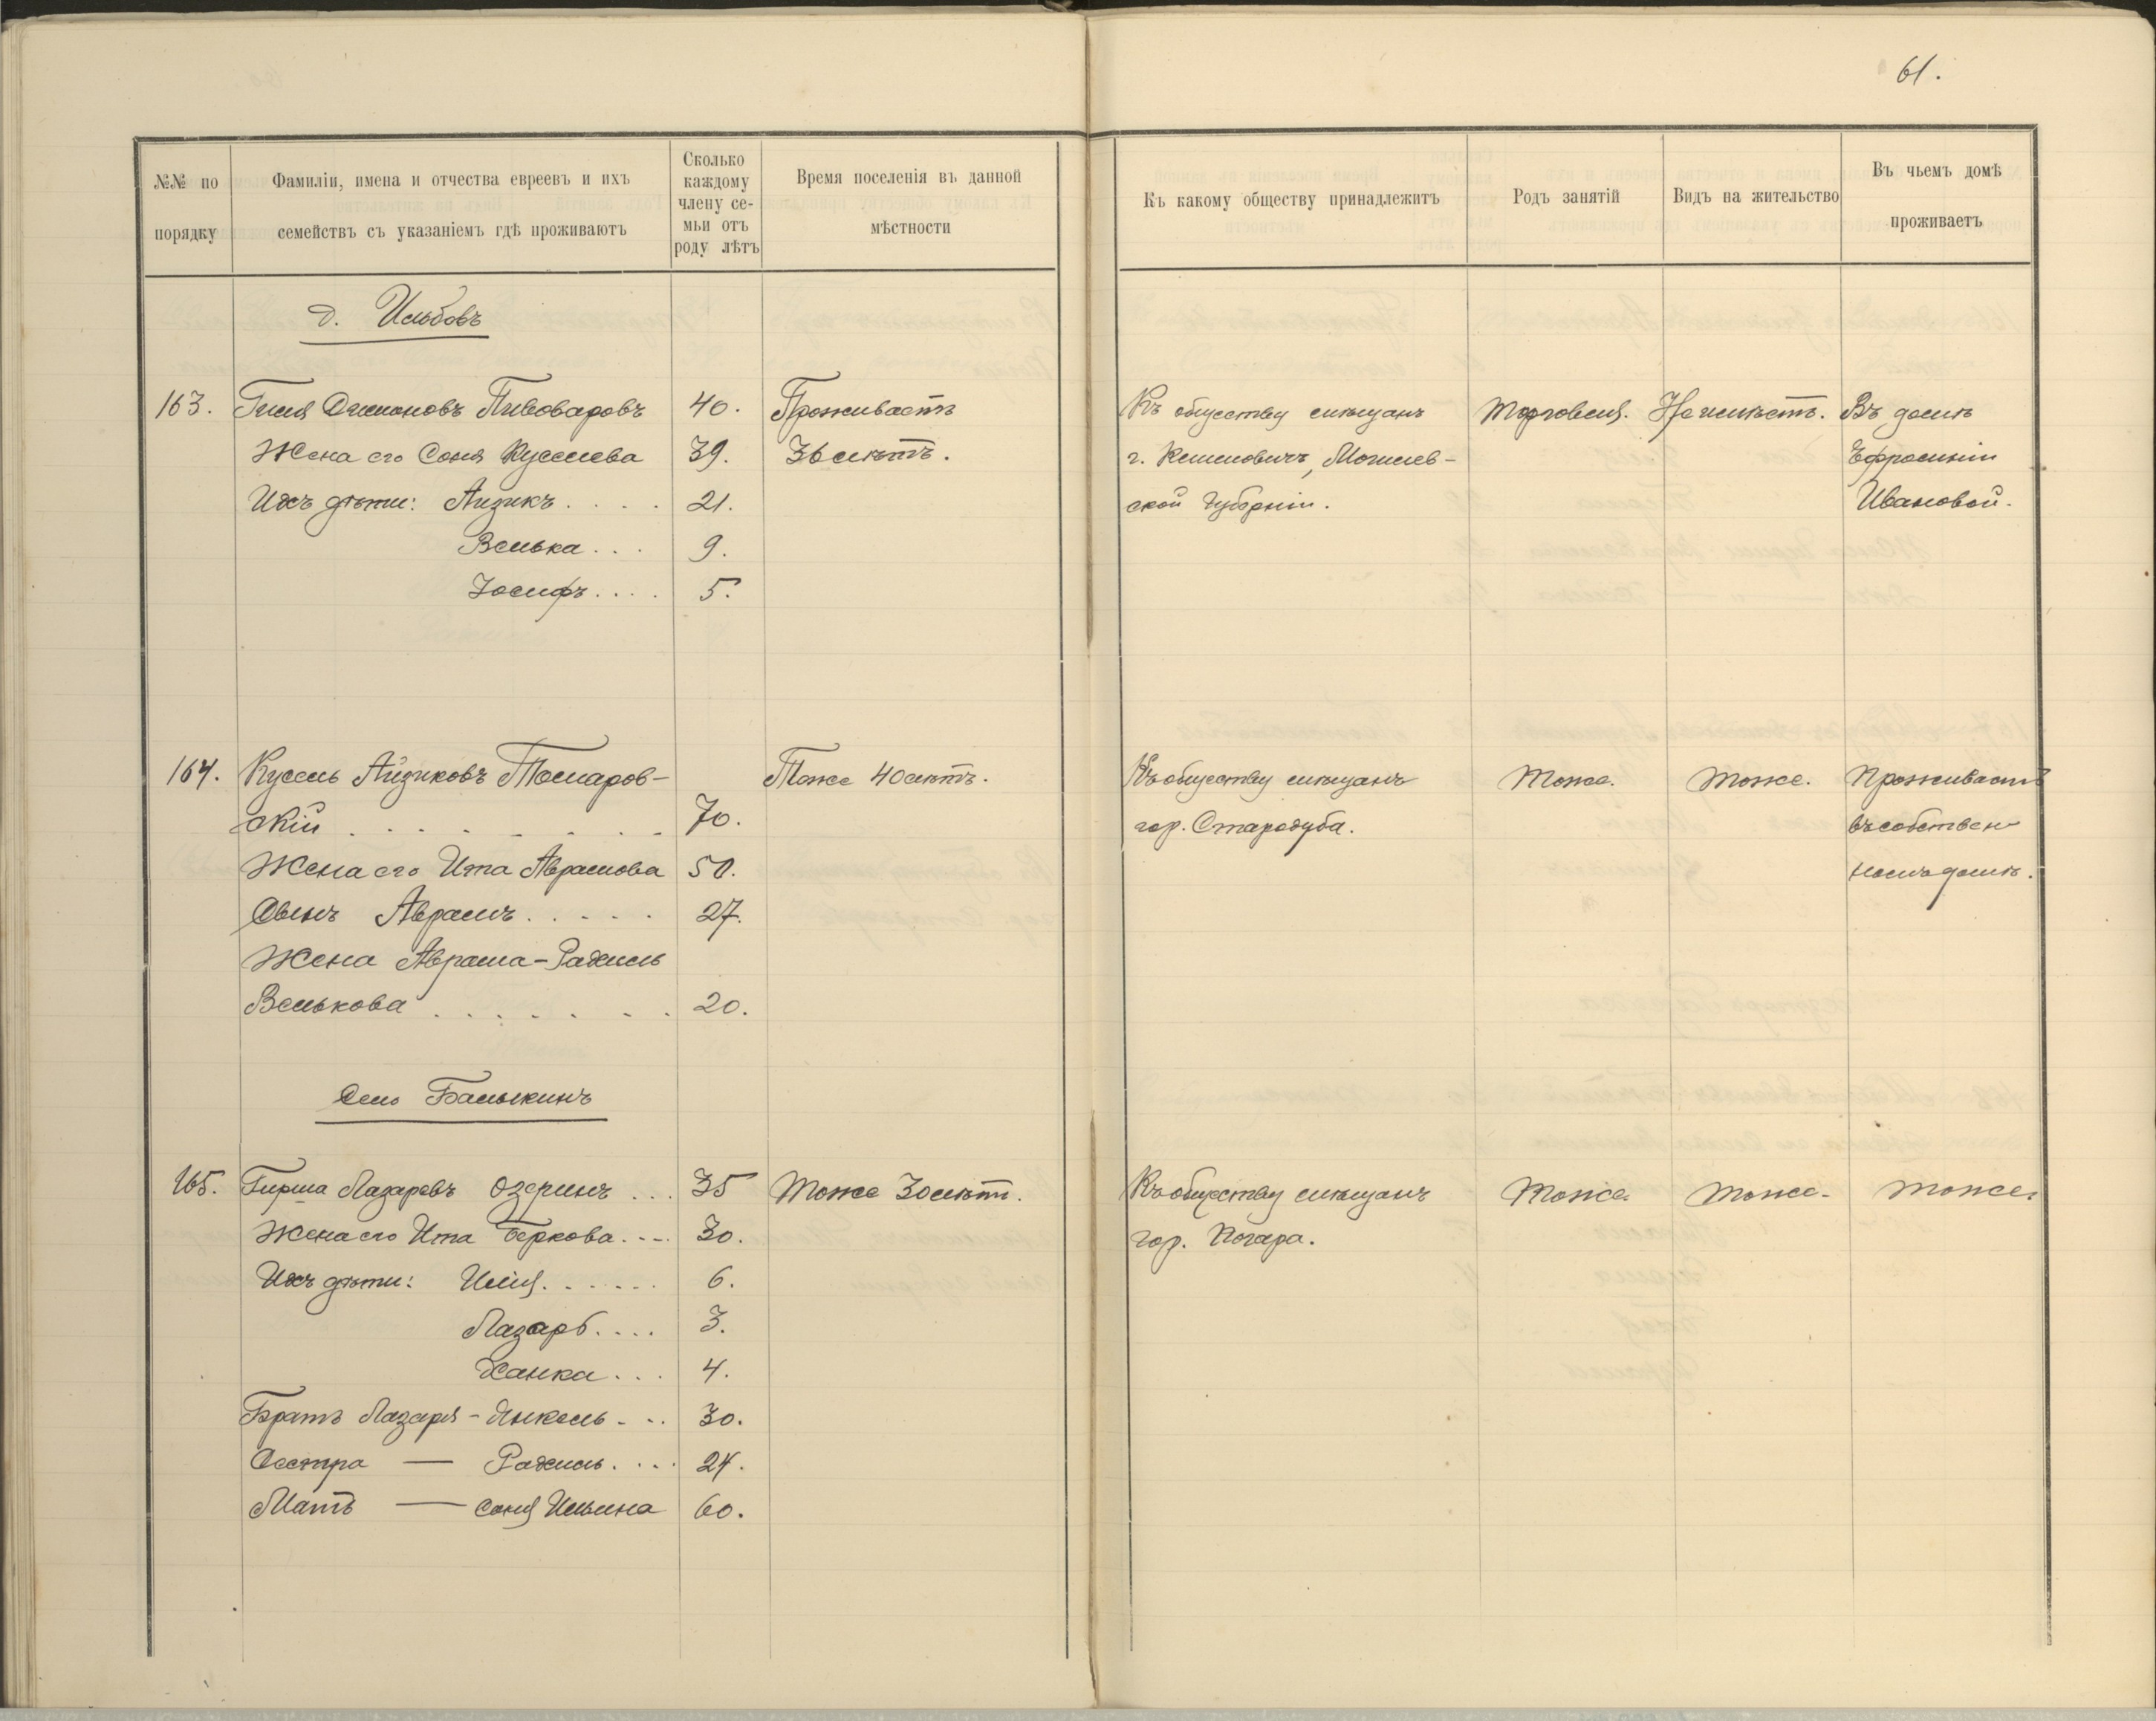 61.
№№ по порядку
Фамиліи, имена и отчества евреевъ и ихъ
семействъ съ указаніемъ гдѣ проживаютъ
Сколько
каждому
члену се-
мьи отъ
роду лѣтъ
Время поселенія въ данной
мѣстности
Къ какому обществу принадлежитъ
Родъ занятій
Видъ на жительство
Въ чьемъ домѣ
проживаетъ
д. Ильбовъ
163. Гиля Симоновъ Пивоваровъ 40. Проживаетъ Къ обществу мѣщанъ Торговля. Не имѣетъ. Въ домѣ
Жена его Соня Куселева 39. 36 лѣтъ. г. Климовичъ, Могилев- Ефросиніи
Ихъ дѣти: Аизикъ . . . . 21. ской губерніи. Ивановой.
Велька . . . 9.
Іосифъ . . . . 5.
164. Кусель Айзиковъ Томаров- Тоже 40 лѣтъ. Къ обществу мѣщанъ Тоже. Тоже. Проживаетъ
скій . . . . . . . . 70. гор. Стародуба. въ собствен-
Жена его Ита Абрамова 50. номъ домѣ.
Сынъ Абрамъ . . . . . 27.
Жена Абрама - Рахиль
Велькова . . . . . . . 20.
Село Балыкинъ
165. Гирша Лазаревъ Озеринъ . . . 35 Тоже 30 лѣтъ. Къ обществу мѣщанъ Тоже. Тоже. Тоже.
Жена его Ита Беркова. . . . 30. гор. Погара.
Ихъ дѣти: Илія. . . . . . 6.
Лазарь. . . . 3.
Ханка . . . 4.
Братъ Лазаря - Янкель . . . 30.
Сестра — Рахиль. . . . 24.
Мать — Соня Ильина 60.